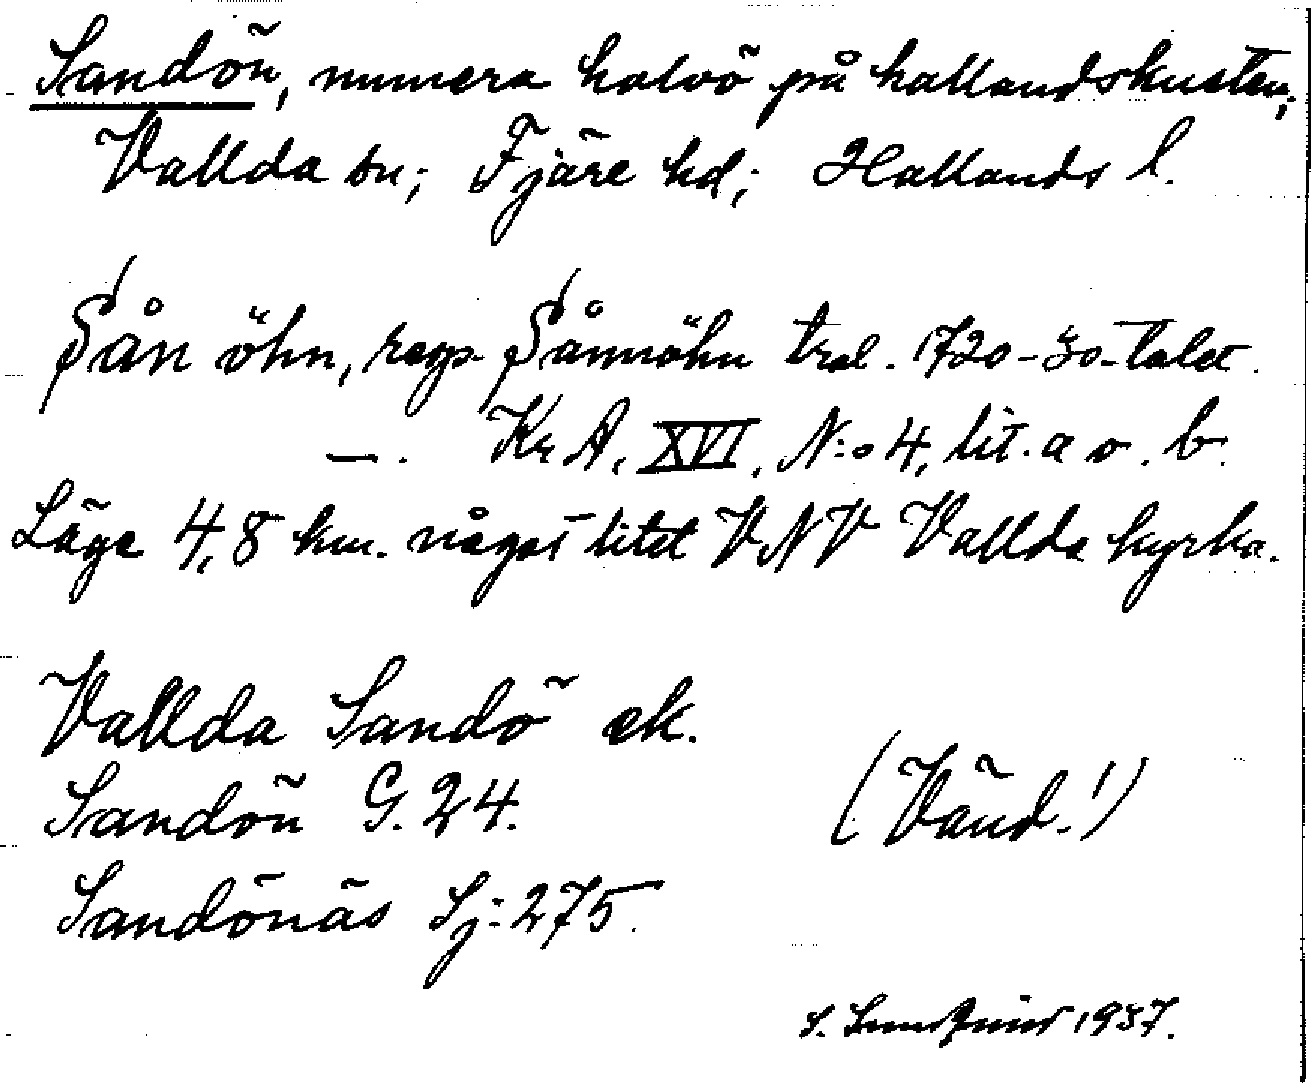 Sandön, numera halvö på hallandskusten,
Vallda sn; Fjäre hd; Hallands l.
Sån öhn, resp. Sånnöhn trol. 1720-30-talet.
—. Kr A, XVI, N:o 4, lit. a o. b.
Läge 4,8 km. något litet VNV Vallda kyrka.
Vallda Sandö ek.
Sandön G. 24.
(Vänd!)
Sandönäs Sj: 275.
S. 1937.